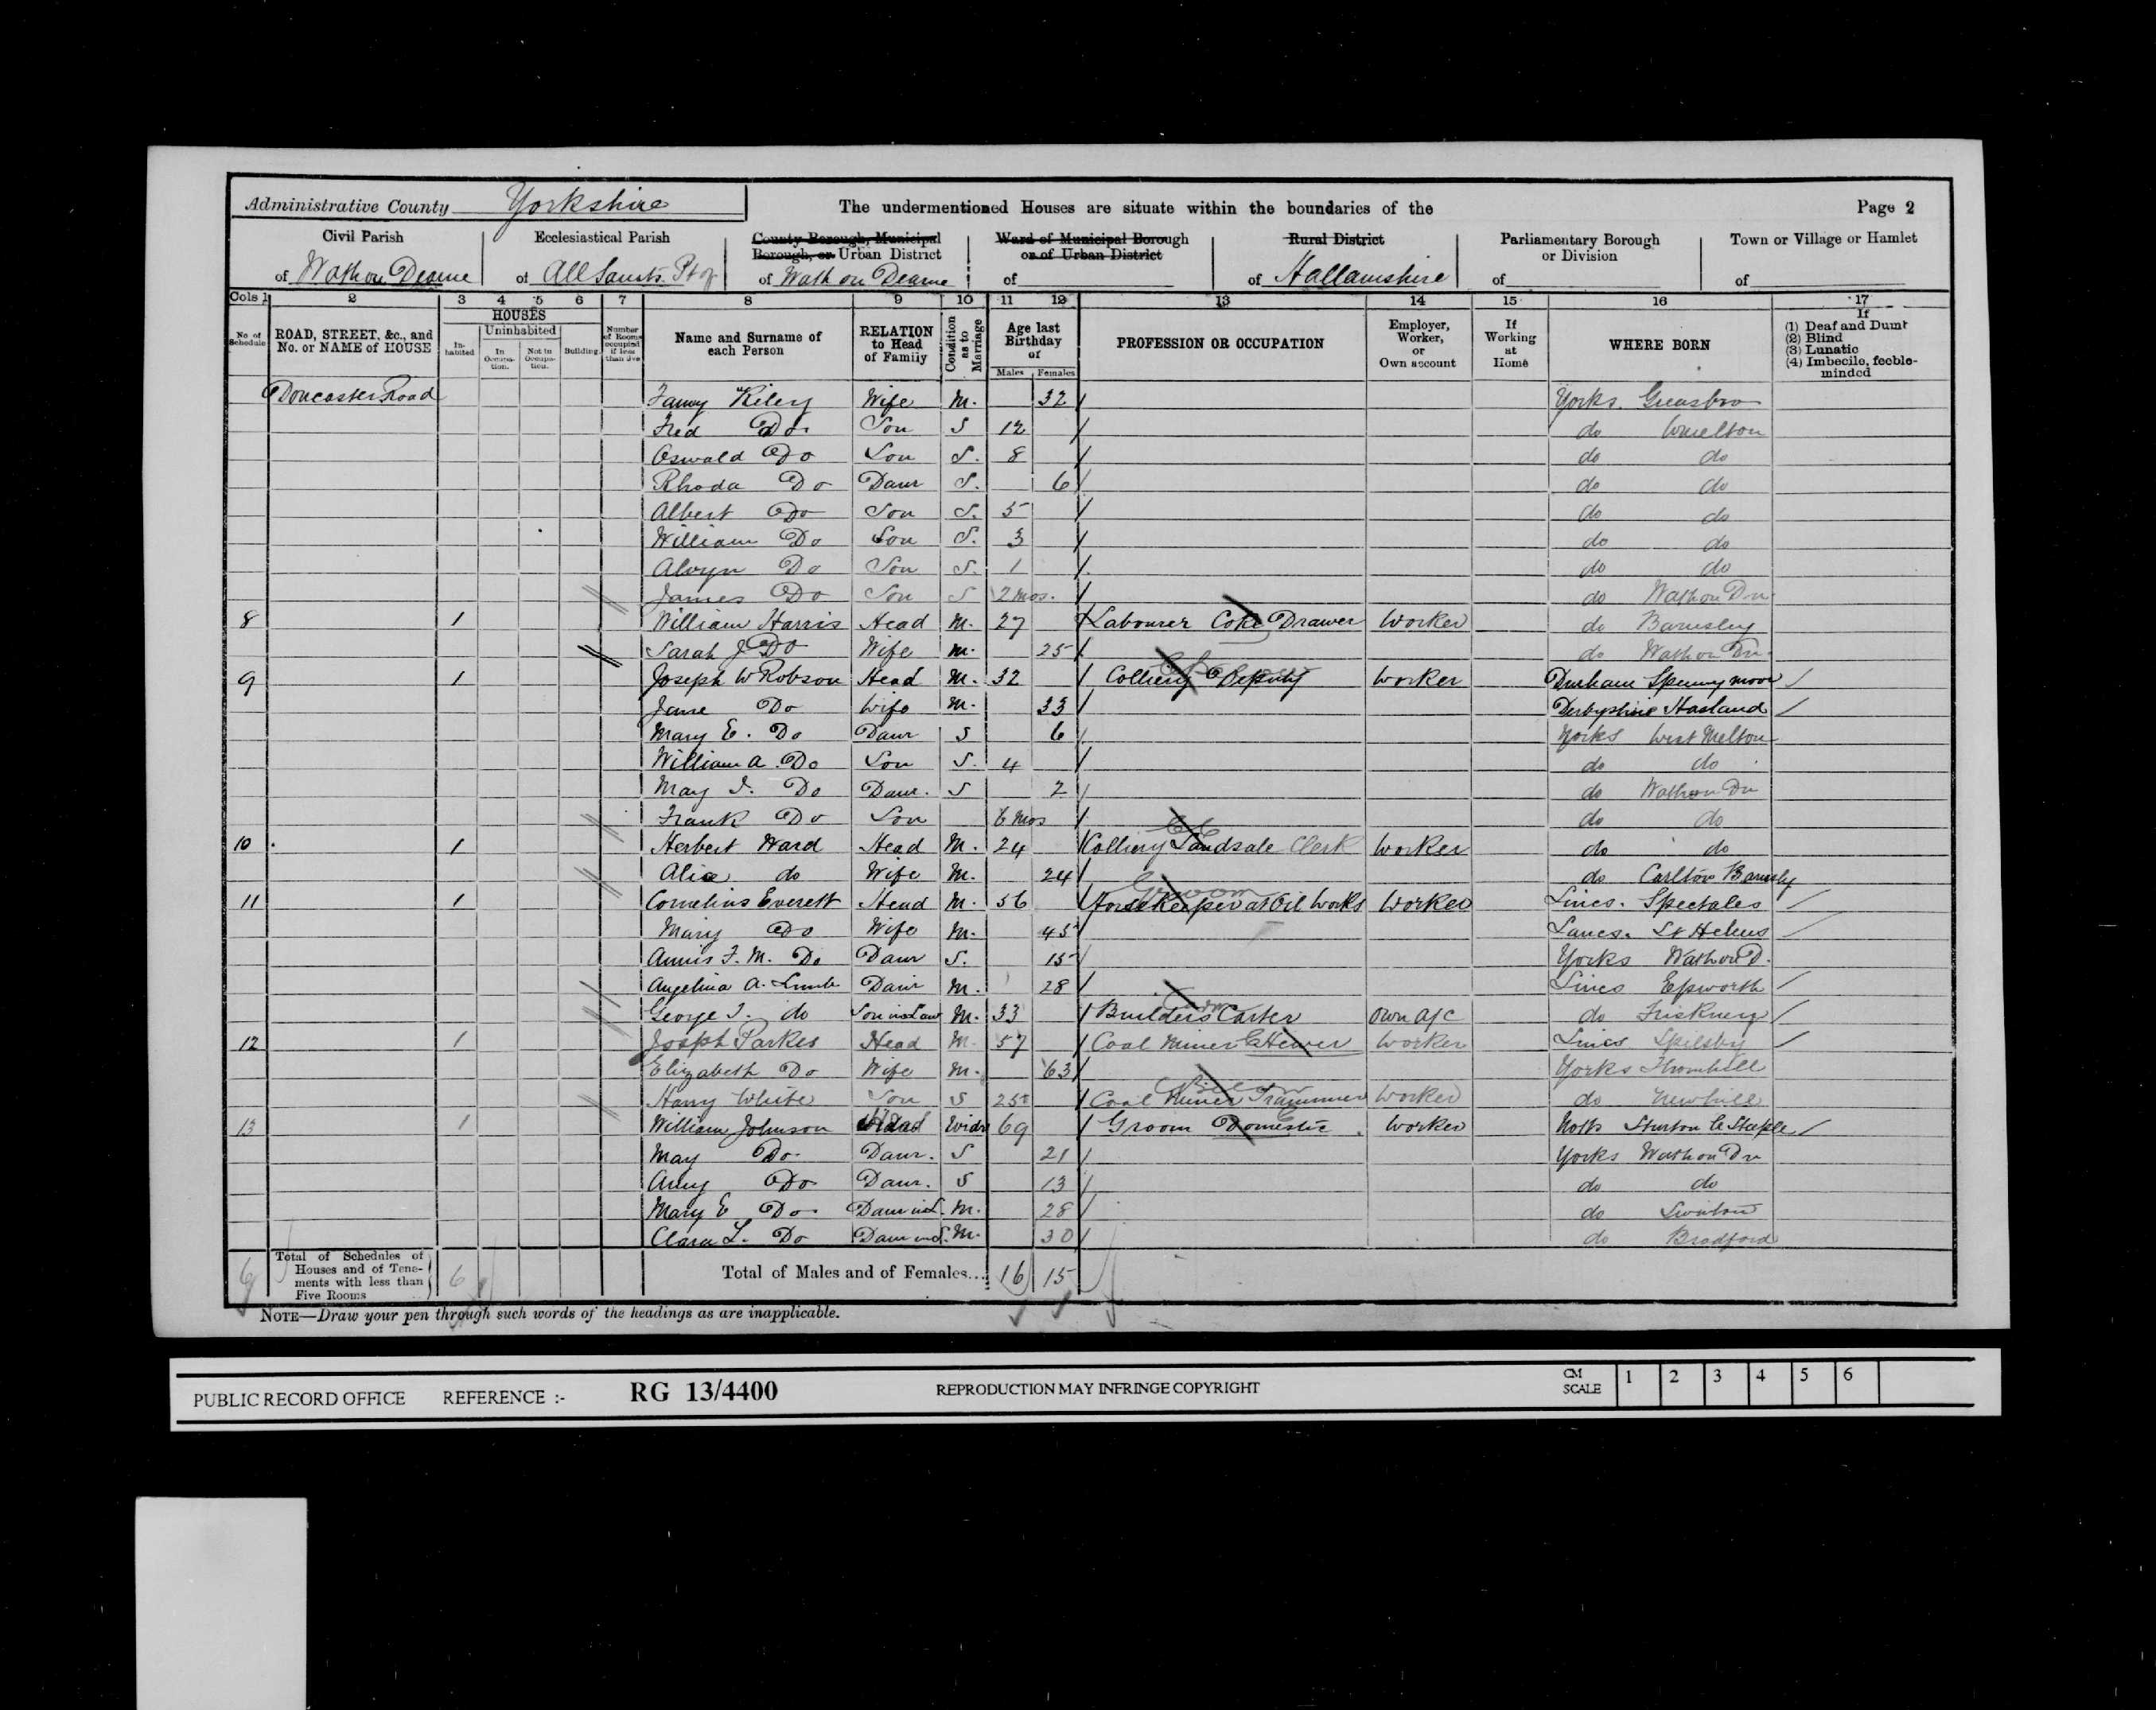 Administrative County Yorkshire
The undermentioned Houses are situate within the boundaries of the
Page 2
Civil Parish of Wath on Dearne
Ecclesiastical Parish of All Saints. Pt of
County Borough, Municipal Borough, or Urban District of Wath on Dearne
Ward of Municipal Borough or of Urban District of
Rural District of Hallamshire
Parliamentary Borough or Division of
Town or Village or Hamlet of
Cols 1 2 3 4 5 6 7 8 9 10 11 12 13 14 15 16 17
No. of Schedule
ROAD, STREET, &c., and No. or NAME of HOUSE
HOUSES
Inhabited
Uninhabited
In Occupation.
Not in Occupation.
Building.
Number of Rooms occupied if less than five
Name and Surname of each Person
RELATION to Head of Family
Condition as to Marriage
Age last Birthday of
Males Females
PROFESSION OR OCCUPATION
Employer, Worker, or Own account
If Working at Home
WHERE BORN
If
(1) Deaf and Dumb
(2) Blind
(3) Lunatic
(4) Imbecile, feeble-minded
Doncaster Road Fanny Riley Wife M. 32 Yorks. Greasbro
Fred Do Son S 12 do
Oswald Do Son S. 8 do do
Rhoda Do Daur S. 6 do do
Albert Do Son S. 5 do do
William Do Son S. 3 do do
Alwyn Do Son S. 1 do do
James Do Son S 2 mos. do Wath on Dn
8 1 William Harris Head M. 27 Labourer Coke Drawer Worker do Barnsley
Sarah J Do Wife M. 25 do Wath on Dn
9 1 Joseph W Robson Head M. 32 Colliery Deputy Worker Durham Spennymoor
Jane Do Wife M. 33 Derbyshire Hasland
Mary E. Do Daur S 6 Yorks West Melton
William A. Do Son S. 4 do do
May I. Do Daur. S 2 do Wath on Dn
Frank Do Son 6 mos do do
10 1 Herbert Ward Head M. 24 Colliery Landsale Clerk Worker do do
Alice do Wife M. 24 do Carlton Barnsly
11 1 Cornelius Everett Head M. 56 Groom Horse Keeper at Oil Works Worker Lincs.
Mary Do Wife M. 45 Lancs. St Helens
Annis F. M. Do Daur S. 15 Yorks Wath on D.
Angelina A. Limb Daur M. 28 Lincs Epworth
George T. do Son in Law M. 33 Builders Carter Own a/c do Friskney
12 1 Joseph Parkes Head M. 57 Coal Miner Hewer Worker Lincs Spilsby
Elizabeth Do Wife M. 63 Yorks Thornhill
Harry White Son S 25 Coal Miner Trammer Worker do Newhill
13 1 William Johnson Head Widr 69 Groom Domestic. Worker Notts Sturton le Steeple
May Do Daur. S 21 Yorks Wath on Dn
Amy Do Daur. S 13 do do
Mary E Do Daur in L. M. 28 do Swinton
Clara L. Do Daur in L. M. 30 do Bradford
6 Total of Schedules of Houses and of Tenements with less than Five Rooms 6
Total of Males and of Females... 16 15
NOTE—Draw your pen through such words of the headings as are inapplicable.
PUBLIC RECORD OFFICE REFERENCE :- RG 13/4400 REPRODUCTION MAY INFRINGE COPYRIGHT
CM SCALE 1 2 3 4 5 6